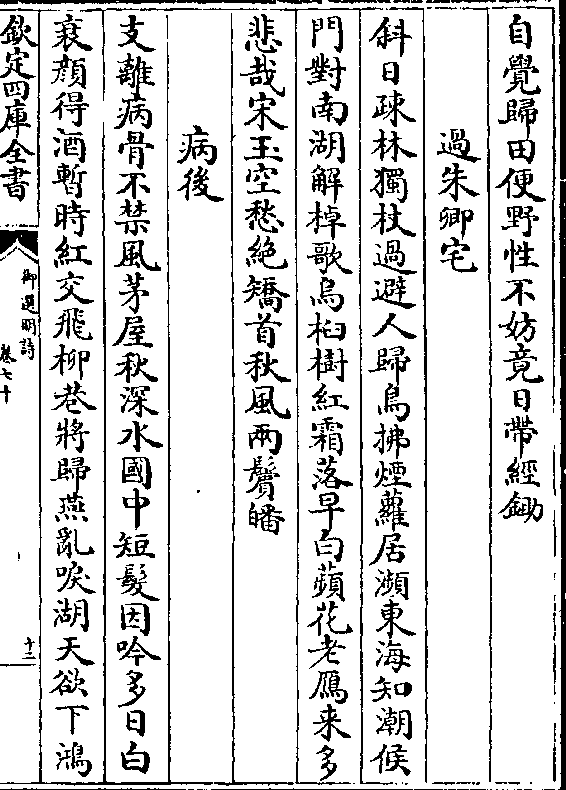 自覺歸田便野性不妨竟日帶經鋤
過朱卿宅
斜日疎林獨杖過避人歸鳥拂煙蘿居瀕東海知潮候
門對南湖解棹歌烏桕樹紅霜落早白蘋花老鴈来多
悲哉宋玉空愁絶矯首秋風兩鬢皤
病後
支離病骨不禁風茅屋秋深水國中短髮因吟多日白
衰顔得酒暫時紅交飛柳巷將歸燕亂唳湖天欲下鴻
欽定四庫全書
御選明詩
卷七十
十三